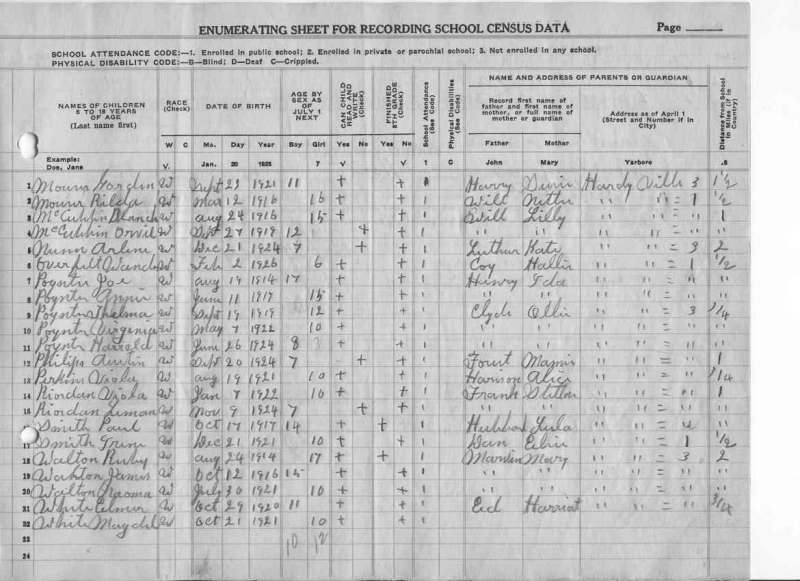 ENUMERATING SHEET FOR RECORDING SCHOOL CENSUS DATA Page
SCHOOL ATTENDANCE CODE:—1. Enrolled in public school; 2. Enrolled in private or parochial school; 3. Not enrolled in any school.
PHYSICAL DISABILITY CODE:—B—Blind; D—Deaf C—Crippled.
NAMES OF CHILDREN 6 TO 18 YEARS OF AGE (Last name first) RACE (Check) DATE OF BIRTH AGE BY SEX AS OF JULY 1 NEXT CAN CHILD READ AND WRITE (Check) FINISHED 8TH GRADE (Check) School Attendance (See Code) Physical Disabilities (See Code) NAME AND ADDRESS OF PARENTS OR GUARDIAN Distance from School in Miles (if in Country)
Record first name of father and first name of mother, or full name of mother or guardian Address as of April 1 (Street and Number if in City)
W C Mo. Day Year Boy Girl Yes No Yes No Father Mother
Example: Doe, Jane V. Jan. 20 1925 7 √ √ 1 C John Mary Yarboro .6
1 W Sept 23 1921 11 + + 1 Harry Hardy Ville 3 1½
2 Hilda W Mar 12 1916 16 + + ' Will " " = 1 ½
3 McCubbin Blanch W Aug 24 1916 15 + + ' Will Lilly " " = " 1
4 McCubbin Orvil W Sept 27 1919 12 + + ' " " " " = " "
5 Nunn W Dec 21 1924 7 + + ' Luthur Katy " " = 3 2
6 Overfelt Wanda W Feb 2 1926 6 + + ' Coy " " = 1 ½
7 Poynter Joe W Aug 19 1914 17 + + ' Henry Ida " " = " "
8 Poynter Annie W June 11 1917 15 + + ' " " " " = " "
9 Poynter Thelma W Sept 19 1919 12 + + ' Clyde Ollie " " = 3 ¼
10 Poynter Virginia W May 7 1922 10 + + ' " " " " = " "
11 Poynter Harrold W June 26 1924 8 + + ' " " " " = " "
12 Philips Austin W Sept 20 1924 7 + + ' Mamie " " = " 1
13 Perkins Viola W Aug 19 1921 10 + + ' Harrison Alice " " = " ¼
14 Riordan Viola W Jan 7 1922 10 + + ' Frank " " = " 1
15 Riordan W Nov 9 1924 7 + + ' " " " " = " "
16 Smith Paul W Oct 17 1917 14 + + ' Hubbard Lula " " = 4 "
17 Smith W Dec 21 1921 10 + + ' Dan " " = 1 ½
18 Walton Ruby W Aug 24 1914 17 + + ' Mary " " = 3 2
19 Walton James W Oct 12 1916 15 + + ' " " " " = " "
20 Walton W July 30 1921 10 + + ' " " " " = " "
21 White Elmer W Oct 29 1920 11 + + ' Ed Harriet " " = " ¾
22 White W Oct 21 1921 10 + + ' " " " " = " "
23 10 12
24